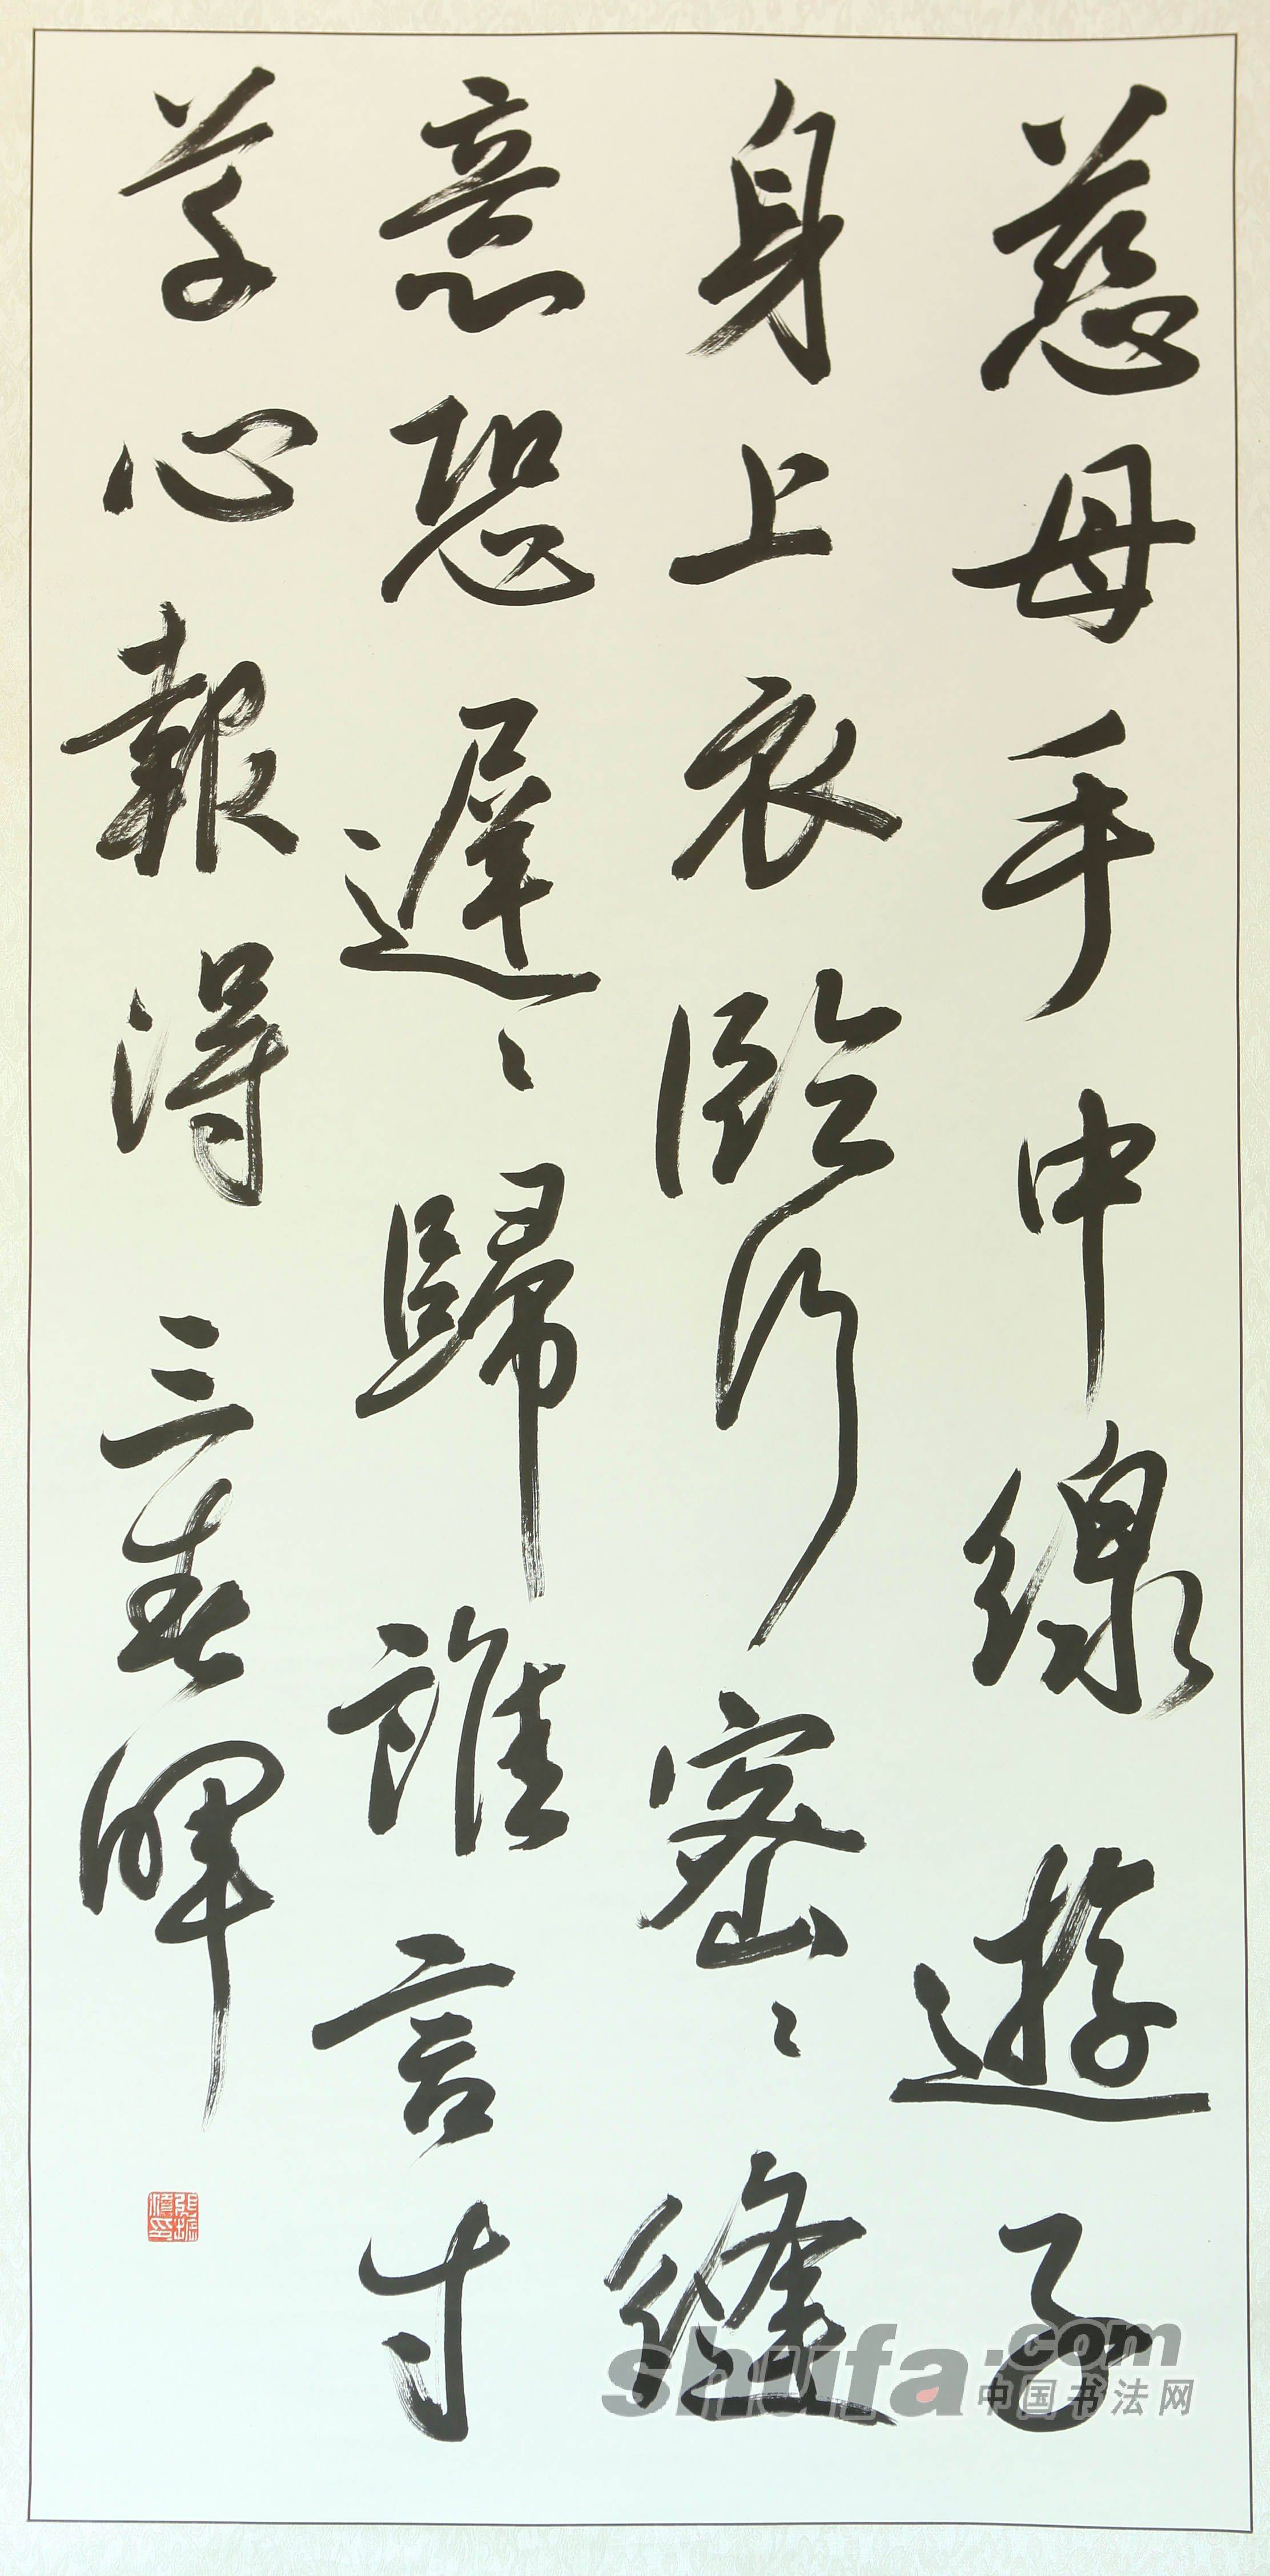 慈母手中線遊子
身上衣臨行密〻縫
意恐遲〻歸誰言寸
草心報得三春暉
shufa.com
中国书法网